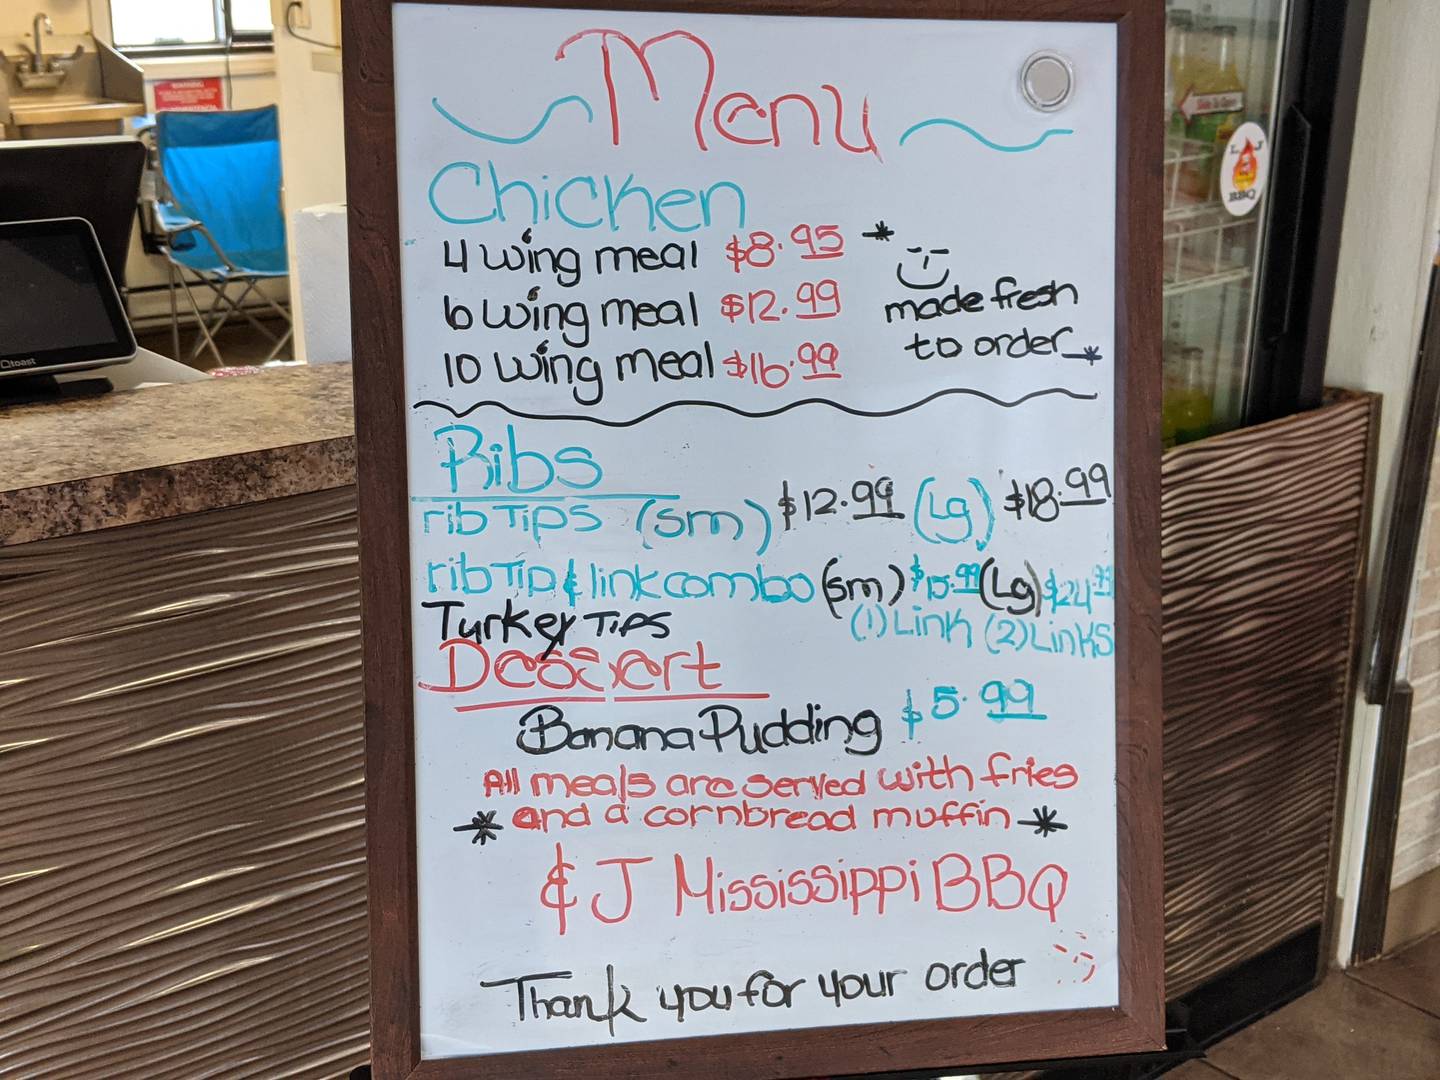 Menu
Chicken
4 wing meal $8.95 *
6 wing meal $12.99 made fresh
10 wing meal $16.99 to order *
Ribs
rib Tips (sm) $12.99 (Lg) $18.99
rib Tip & link combo (sm) $15.99 (Lg) $24.99
Turkey Tips (1) Link (2) Links
Dessert
Banana Pudding $5.99
All meals are served with fries
* and a cornbread muffin *
& J Mississippi BBQ
Thank you for your order
toast
Slide To Open
L J
BBQ
WARNING